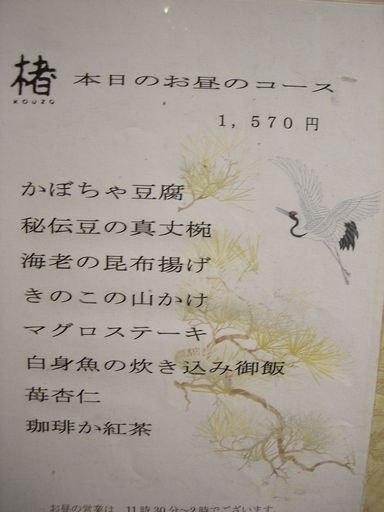 楮 本日のお昼のコース
KOUZO
1,570円
かぼちゃ豆腐
秘伝豆の真丈椀
海老の昆布揚げ
きのこの山かけ
マグロステーキ
白身魚の炊き込み御飯
苺杏仁
珈琲か紅茶
お昼の営業は 11時30分~2時でございます。